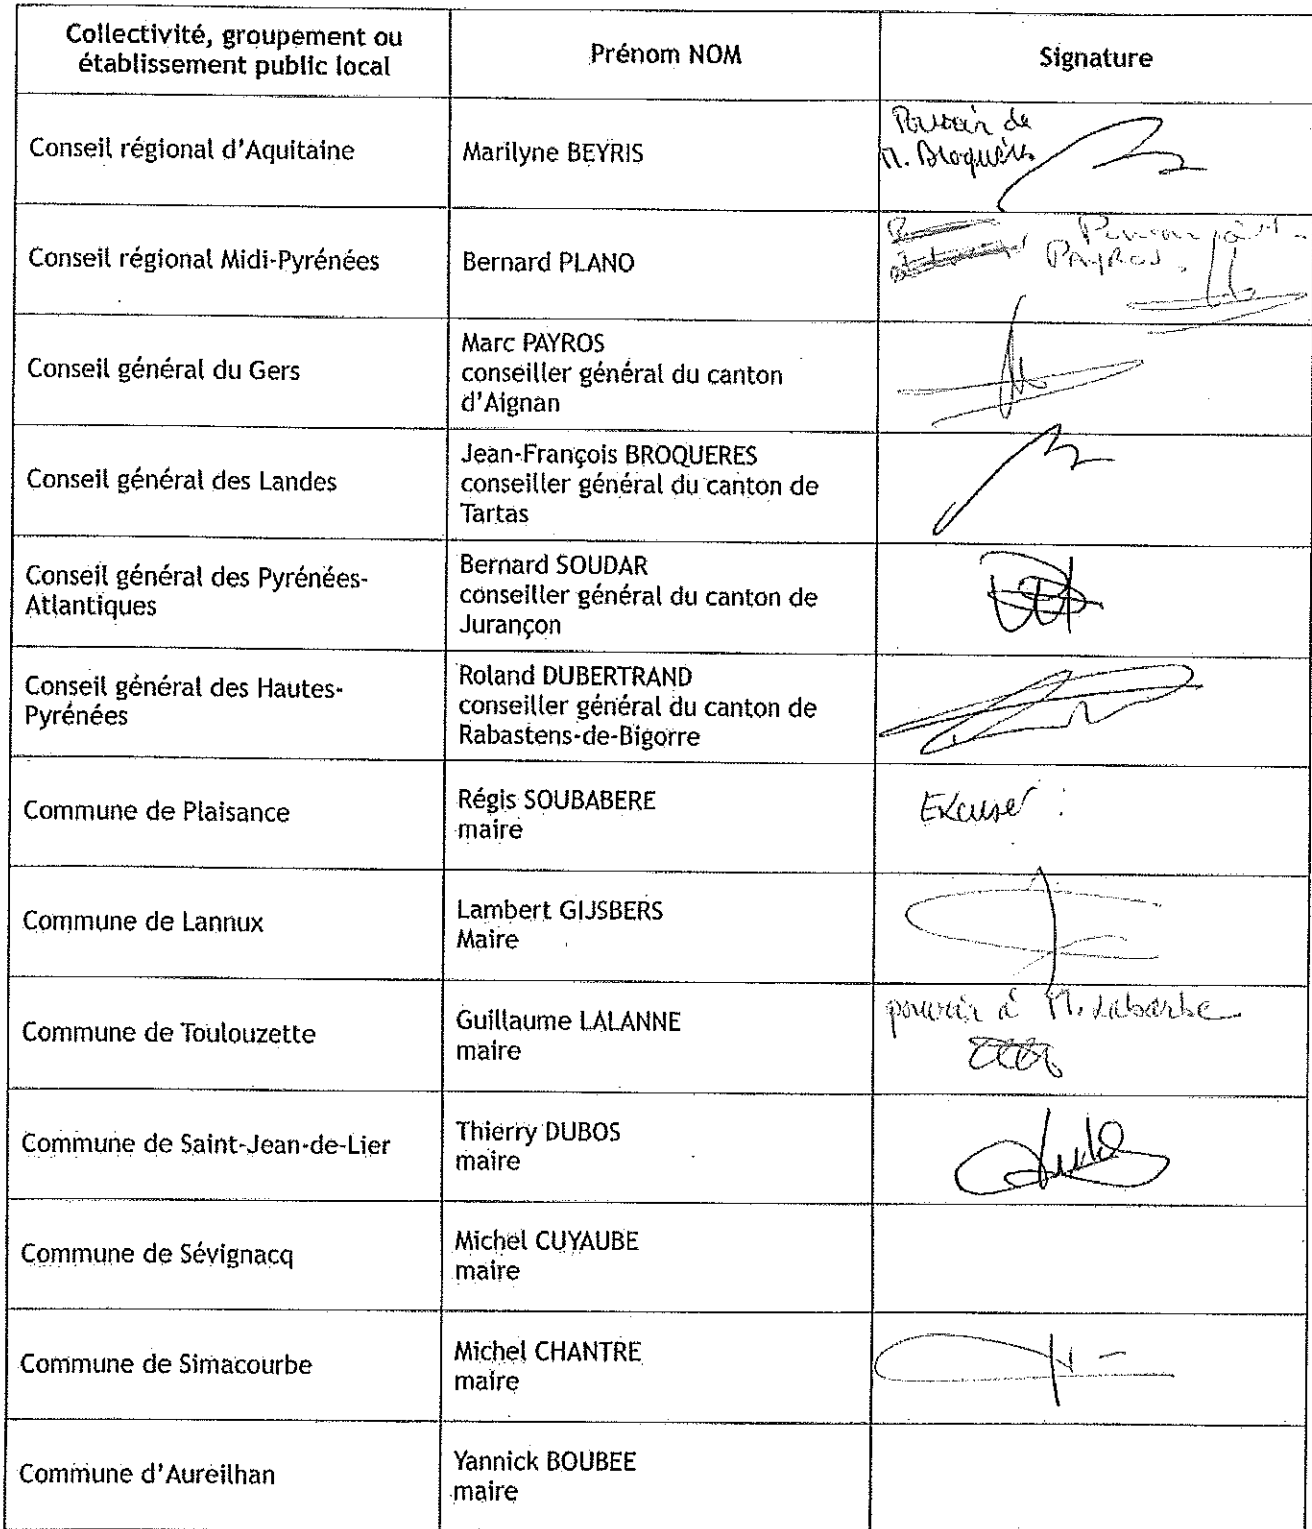 Collectivité, groupement ou
établissement public local
Prénom NOM
Signature
Conseil régional d'Aquitaine
Marilyne BEYRIS
Pouvoir de
M. Broquères
Conseil régional Midi-Pyrénées
Bernard PLANO
Pouvoir à M.
PAYROS.
Conseil général du Gers
Marc PAYROS
conseiller général du canton
d'Aignan
Conseil général des Landes
Jean-François BROQUERES
conseiller général du canton de
Tartas
Conseil général des Pyrénées-
Atlantiques
Bernard SOUDAR
conseiller général du canton de
Jurançon
Conseil général des Hautes-
Pyrénées
Roland DUBERTRAND
conseiller général du canton de
Rabastens-de-Bigorre
Commune de Plaisance
Régis SOUBABERE
maire
Excuser :
Commune de Lannux
Lambert GIJSBERS
Maire
Commune de Toulouzette
Guillaume LALANNE
maire
pouvoir à M. Labarbe
Commune de Saint-Jean-de-Lier
Thierry DUBOS
maire
Commune de Sévignacq
Michel CUYAUBE
maire
Commune de Simacourbe
Michel CHANTRE
maire
Commune d'Aureilhan
Yannick BOUBEE
maire